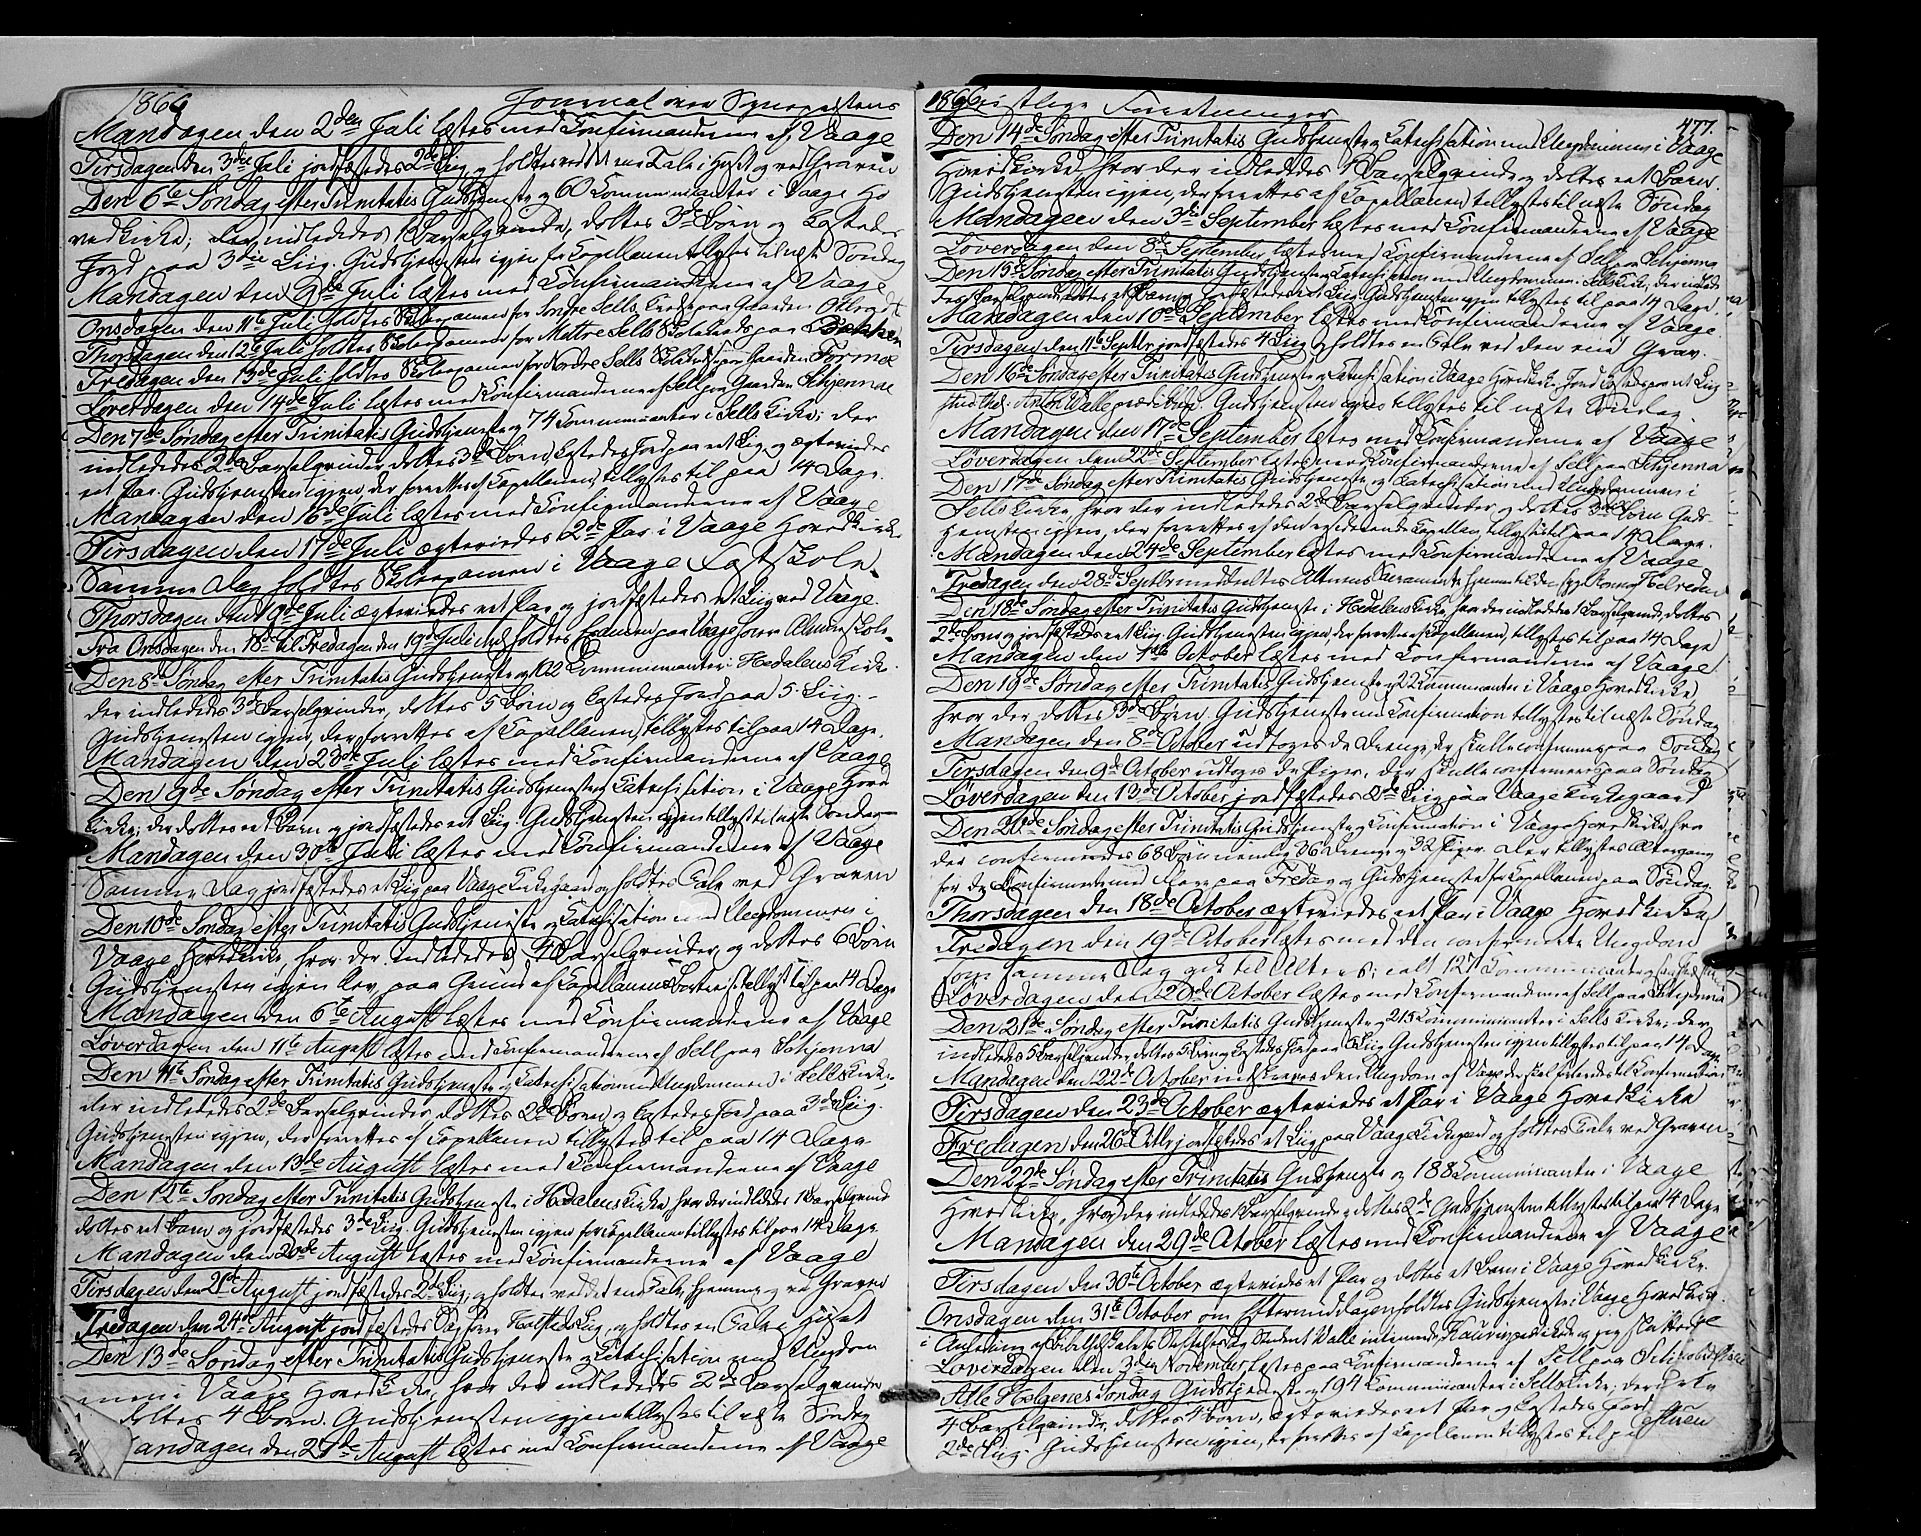 1866 Journal over Sognepræstens
Mandagen den 2den Juli læstes med Confirmanderne af Vaage
Tirsdagen den 3die Juli jordfæstedes 2de Liig og holdtes ved det ene Tale i Huset og ved Graven
Den 6te Søndag efter Trinitatis Gudstjeneste og 60 Communicanter i Vaage Ho
vedkirke; der indlededes 1 Barselqvinde, døbtes 3de Børn og kastedes
Jord paa 3die Liig. Gudstjenesten igjen for Capellanen tillystes til næste Søndag
Mandagen den 9de Juli læstes med Confirmanderne af Vaage
Onsdagen den 11te Juli holdtes Skoleexamen for Søndre Sells Kreds paa Gaarden
Thorsdagen den 12te Juli holdtes Skoleexamen for Mittre Sells Skolekreds paa Bakken
Fredagen den 13de Juli holdtes Skoleexamen for Nordre Sells Skolekreds paa Gaarden Formoe
Løverdagen den 14de Juli læstes med Confirmanderne af Sell paa Gaarden Schjennae
Den 7de Søndag efter Trinitatis Gudstjeneste og 74 Communicanter i Sells Kirke; der
indlededes 2de Barselqvinder, døbtes 3de Børn, kastedes Jord paa et Liig og ægteviedes
eet Par. Gudstjenesten igjen, der forrettes af Capellanen, tillystes til paa 14 Dage.
Mandagen den 16de Juli læstes med Confirmanderne af Vaage
Tirsdagen den 17de Juli ægteviedes 2de Par i Vaage Hovedkirke
Samme Dag holdtes Skoleexamen i Vaage fast Skole.
Thorsdagen den 19de Juli ægteviedes eet Par og jordfæstedes et Liig ved Vaage.
Fra Onsdagen den 18de til Fredagen den 19de Juli incl. holdtes Examen paa Vaage Almueskole.
Den 8de Søndag efter Trinitatis Gudstjeneste og 122 Communicanter i Hedalens Kirke.
der indlededes 3de Barselqvinder, døbtes 5 Børn og kastedes Jord paa 5 Liig.
Gudstjenesten igjen, der forrettes af Capellanen, tillystes til paa 14 Dage.
Mandagen den 23de Juli læstes med Confirmanderne af Vaage
Den 9de Søndag efter Trinitatis Gudstjeneste og Catechisation i Vaage Hoved
kirke; der døbtes eet Barn og jordfæstedes eet Liig. Gudstjenesten igjen tillyst til næste Søndag
Mandagen den 30te Juli læstes med Confirmanderne af Vaage
Samme Dag jordfæstedes et Liig paa Vaage Kirkegaard og holdtes Tale ved Graven
Den 10de Søndag efter Trinitatis Gudstjeneste og Catechisation med Ungdommen i
Vaage Hovedkirke, hvor der indlededes 4 Barselqvinder og døbtes 6 Børn
Gudstjenesten igjen blev, paa Grund af Capellanens Bortreise, tillyst til paa 14 Dage
Mandagen den 6te August læstes med Confirmanderne af Vaage
Løverdagen den 11te August læstes med Confirmanderne af Sell paa Schjenna
Den 11te Søndag efter Trinitatis Gudstjeneste og Catechisation med Ungdommen i Sells Kirke.
der indlededes 2de Barselqvinder, døbtes 2de Børn og kastedes Jord paa 3de Liig.
Gudstjenesten igjen, der forrettes af Capellanen tillystes til paa 14 Dage
Mandagen den 13de August læstes med Confirmanderne af Vaage
Den 12te Søndag efter Trinitatis Gudstjeneste i Hedalens Kirke, hvor der indlededes 1 Barselqvinde
døbtes eet Barn og jordfæstedes 3de Liig. Gudstjenesten igjen for Capellanen tillystes til paa 14 Dage
Mandagen den 20de August læstes med Confirmanderne af Vaage
Tirsdagen den 21de August jordfæstedes 2de Liig, og holdtes ved det ene Tale, hjemme og ved Graven
Fredagen den 24de August jordfæstedes Liig, og holdtes en Tale i Huset
Den 13de Søndag efter Trinitatis Gudstjeneste og Catechisation med Ungdom
men i Vaage Hovedkirke, hvor der indlededes 2de Barselqvinder
døbtes 4 Børn. Gudstjenesten igjen tillystes til næste Søndag
Mandagen den 27de August læstes med Confirmanderne af Vaage
1866 geistlige Forretninger 477.
Den 14de Søndag efter Trinitatis Gudstjeneste og Catechisation med Ungdommen i Vaage
Hovedkirke hvor der indlededes 1 Barselqvinde og døbtes eet Barn.
Gudstjenesten igjen, der forrettes af Capellanen, tillystes til næste Søndag
Mandagen den 3die September læstes med Confirmanderne af Vaage
Løverdagen den 8de September læstes med Confirmanderne af Sell paa Schjenna
Den 15de Søndag efter Trinitatis Gudstjeneste og Catechisation med Ungdommen i Sells Kirke, der indlede
des Barselqvinde, døbtes et Barn og jordfæstedes eet Liig. Gudstjenesten igjen tillystes til paa 14 Dage.
Mandagen den 10de September læstes med Confirmanderne af Vaage
Tirsdagen den 11te Septbr jordfæstedes 4 Liig og holdtes en Tale ved den ene Grav.
Den 16de Søndag efter Trinitatis Gudstjeneste og Catechisation i Vaage Hovedkirke. Jord kastedes paa et Liig
Stud. theol. Anton Walle prædikede. Gudstjenesten igjen tillystes til næste Søndag
Mandagen den 17de September læstes med Confirmanderne af Vaage
Løverdagen den 22de September læstes med Confirmanderne af Sell paa Schjenna
Den 17de Søndag efter Trinitatis Gudstjeneste og Catechisation med Ungdommen i
Sells Kirke hvor der indlededes 2de Barselqvinder og døbtes 3de Børn Guds
tjenesten igjen, der forrettes af den residerende Capellan, tillystes til paa 14 Dage.
Mandagen den 24de September læstes med Confirmanderne af Vaage
Fredagen den 28de Septbr meddeltes Alterens Sacramente hjemme til den syge
Den 18de Søndag efter Trinitatis Gudstjeneste i Hedalens Kirke, hvor der indlededes 1 Barselqvinde, døbtes
2de Børn og jordfæstedes eet Liig. Gudstjenesten igjen, der forrettes af Capellanen, tillystes til paa 14 Dage
Mandagen den 1ste October læstes med Confirmanderne af Vaage
Den 19de Søndag efter Trinitatis Gudstjeneste og 22 Communicanter i Vaage Hovedkirke
hvor der døbtes 3de Børn. Gudstjeneste med Confirmation tillystes til næste Søndag
Mandagen den 8de October udtoges de Drenge, der skulle confirmeres paa Søndag
Tirsdagen den 9de October udtoges de Piger, der skulle confirmeres paa Søndag
Løverdagen den 13de October jordfæstedes 2de Liig paa Vaage Kirkegaard
Den 20de Søndag efter Trinitatis Gudstjeneste og Confirmation i Vaage Hovedkirke, hvor
der confirmeredes 68 Børn nemlig 36 Drenge og 32 Piger. Der tillystes Altergang
for de Confirmerede med flere paa Fredag og Gudstjeneste for Capellanen paa Søndag
Thorsdagen den 18de October ægteviedes eet Par i Vaage Hovedkirke
Fredagen den 19de October læstes med den confirmerte Ungdom
som samme Dag gik til Alters; ialt 127 Communicanter
Løverdagen den 20de October læstes med Confirmanderne af Sell paa Schjenna
Den 21de Søndag efter Trinitatis Gudstjeneste og 215 Communicanter i Sells Kirke; der
indlededes 5 Barselqvinder døbtes 5 Børn og kastedes Jord paa Liig Gudstjenesten igjen tillystes til paa 14 Dage
Mandagen den 22de October indskreves den Ungdom af Vaage der skal forberedes til Confirmation
Tirsdagen den 23de October ægteviedes et Par i Vaage Hovedkirke
Fredagen den 26de Octbr jordfæstedes et Liig paa Vaage Kirkegaard og holdtes Tale ved Graven
Den 22de Søndag efter Trinitatis Gudstjeneste og 188 Communicanter i Vaage
Hovedkirke, hvor der indlededes 1 Barselqvinde og døbtes 2de Gudstjenesten tillystes til paa 14 Dage
Mandagen den 29de October læstes med Confirmanderne af Vaage
Tirsdagen den 30te October ægteviedes et Par og døbtes et Barn i Vaage Hovedkirke.
Onsdagen den 31te October om Eftermiddagen holdtes Gudstjeneste i Vaage Hovedkirke.
i Anledning af Bibelselskabets Student Walle prædikede og jeg
Løverdagen den 3die November læstes paa Confirmanderne af Sell paa
Alle Helgenes Søndag Gudstjeneste og 194 Communicanter i Sells Kirke; der
4 Barselqvinder, døbtes 4 Børn, ægteviedes eet Par og kastedes Jord
2de Liig. Gudstjenesten igjen, der forrettes af Capellanen tillystes til